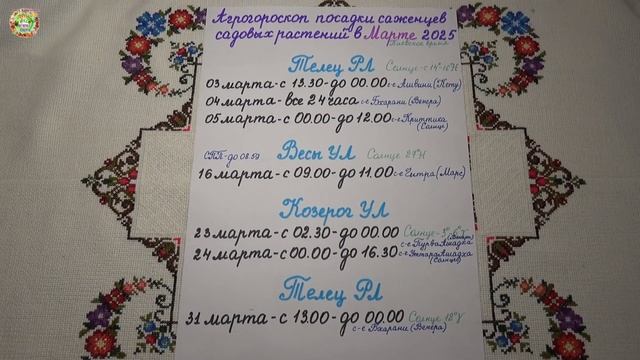 Агрогороскоп посадки саженцев
садовых растений в Марте 2025
Киевское время
Телец РЛ Солнце - с 14°-16°H
03 марта - с 13.30 - до 00.00 с-е Ашвини (Кету)
04 марта - все 24 часа с-е Бхарани (Венера)
05 марта - с 00.00 - до 12.00 с-е Криттика (Солнце)
СПП - до 08.59 Весы УЛ Солнце 27°H
16 марта - с 09.00 - до 11.00 с-е Читра (Марс)
Козерог УЛ
23 марта - с 02.30 - до 00.00 Солнце -
с-е ПурваАшадха (Венера)
24 марта - с 00.00 - до 16.30 с-е УттараАшадха (Солнце)
Телец РЛ
31 марта - с 13.00 - до 00.00 Солнце
с-е Бхарани (Венера)